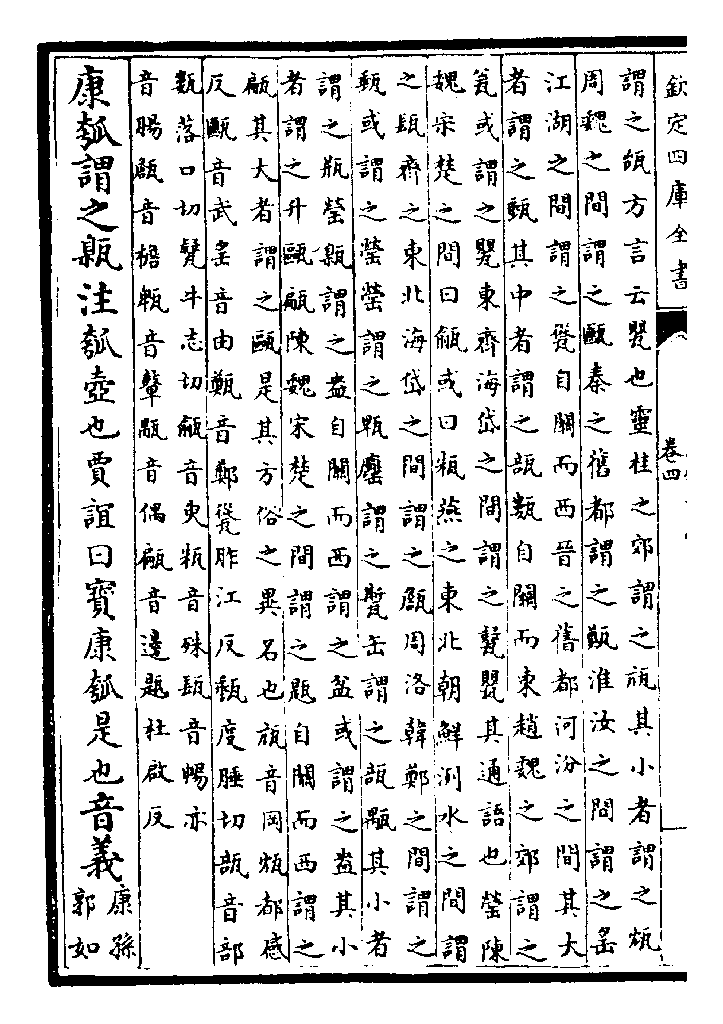 欽定四庫全書
卷四
謂之瓵方言云甖也靈桂之郊謂之瓨其小者謂之瓭
周魏之間謂之甒秦之舊都謂之甄淮汝之間謂之䍃
江湖之間謂之㽅自關而西晉之舊都河汾之間其大
者謂之甀其中者謂之瓿甊自關而東趙魏之郊謂之
瓮或謂之甖東齊海岱之間謂之㽈甖其通語也罃陳
魏宋楚之間曰㼶或曰㼡燕之東北朝鮮洌水之間謂
之瓺齊之東北海岱之間謂之甔周洛韓鄭之間謂之
甀或謂之罃罃謂之甀謂之㽈缶謂之瓿其小者
謂之瓶罃甈謂之盎自關而西謂之盆或謂之盎其小
者謂之升甌甂陳魏宋楚之間謂之㼷自關而西謂之
甂其大者謂之甌是其方俗之異名也瓨音岡瓭都感
反甒音武䍃音由甄音鄭㽅胙江反甀度腄切瓿音部
甊落口切㽈牛志切㼶音臾㼡音殊瓺音暢亦
音腸甔音檐音輦音偶甂音邊㼷杜啟反
康瓠謂之甈注瓠壺也賈誼曰寶康瓠是也音義康孫
郭如